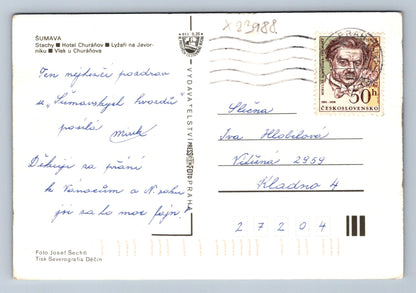 ŠUMAVA
Stachy ■ Hotel Churáňov ■ Lyžaři na Javor-
níku ■ Vlek u Churáňova
X 23988
Ten nejhezčí pozdrav
z „Šumavských hvozdů"
posílá Mirek
Děkuji za přání
k Vánocům a N. roku
je sa to moc fajn.
VYDAVATELSTVÍ PRESSFOTO PRAHA
PRAHA
50h
ČESKOSLOVENSKO
Slečna
Iva Hlobilová
Vítězná 2959
Kladno 4
2 7 2 0 4
Foto Josef Sechtl
Tisk Severografia Děčín